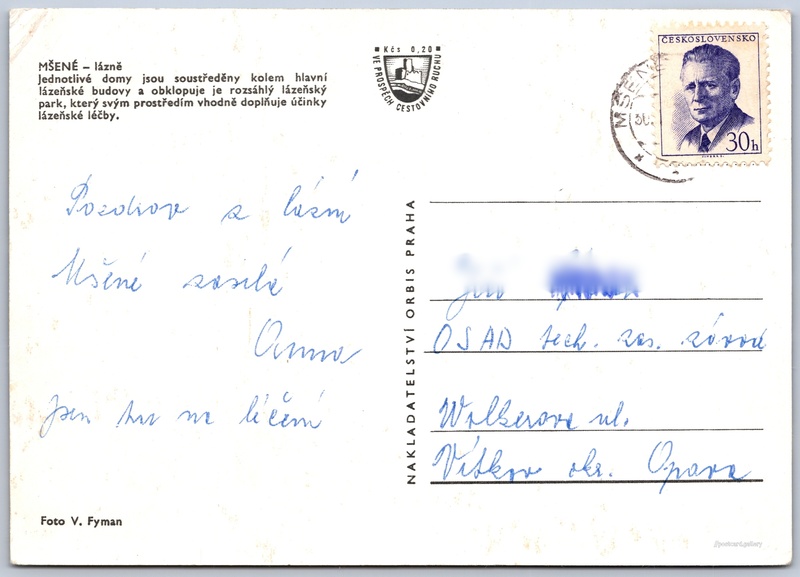 MŠENÉ – lázně
Jednotlivé domy jsou soustředěny kolem hlavní
lázeňské budovy a obklopuje je rozsáhlý lázeňský
park, který svým prostředím vhodně doplňuje účinky
lázeňské léčby.
Kčs 0,20
VE PROSPĚCH CESTOVNÍHO RUCHU
ČESKOSLOVENSKO
30h
MŠENÉ
Pozdrav z lázní
Mšené zasílá
Anna
jsem tu na léčení
NAKLADATELSTVÍ ORBIS PRAHA
OSAD tech. zas. závod
Wolkerova ul.
Vítkov okr. Opava
Foto V. Fyman
@postcard.gallery